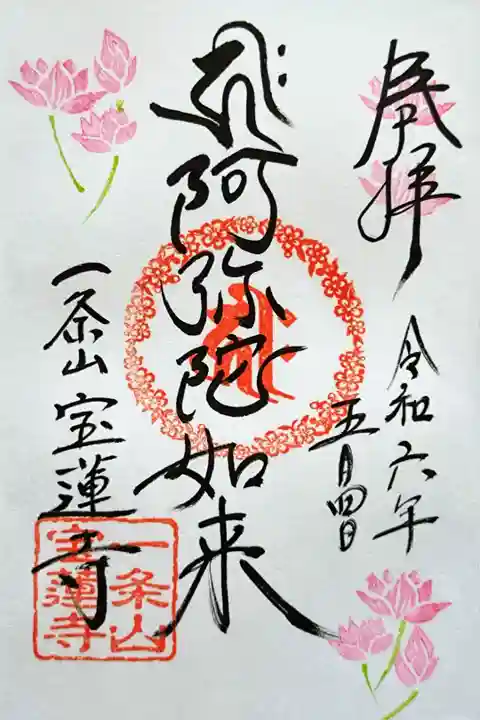 奉拝
令和六年
五月四日
𑖮𑖿𑖨𑖱𑖾
阿弥陀如来
一条山宝蓮寺
一条山
宝蓮寺